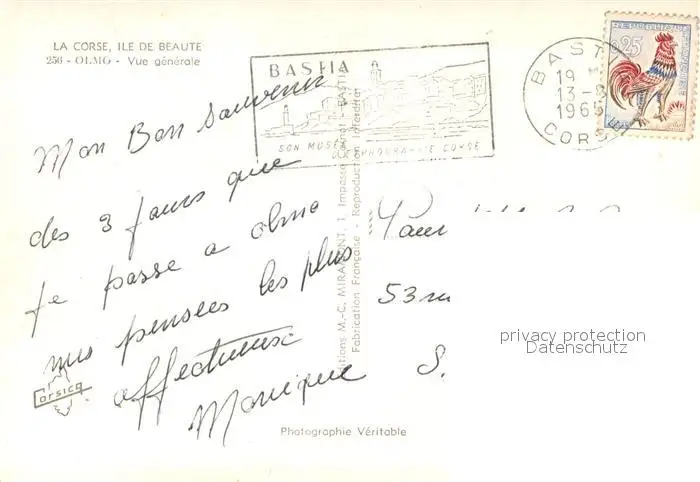 LA CORSE, ILE DE BEAUTE
256 - OLMO - Vue générale
BASTIA
SON MUSÉE D'ETHNOGRAPHIE CORSE
19
13-
1965
CORSE
0,25
Mon Bon Souvenir
des 3 jours que
je passe a olmo
mes pensées les plus
affectueuse
Monique S.
53 ru
Editions M.-C. MIRAMONT, 1 Impasse - BASTIA
Fabrication Française - Reproduction interdite
Corsica
Photographie Véritable
privacy protection
Datenschutz